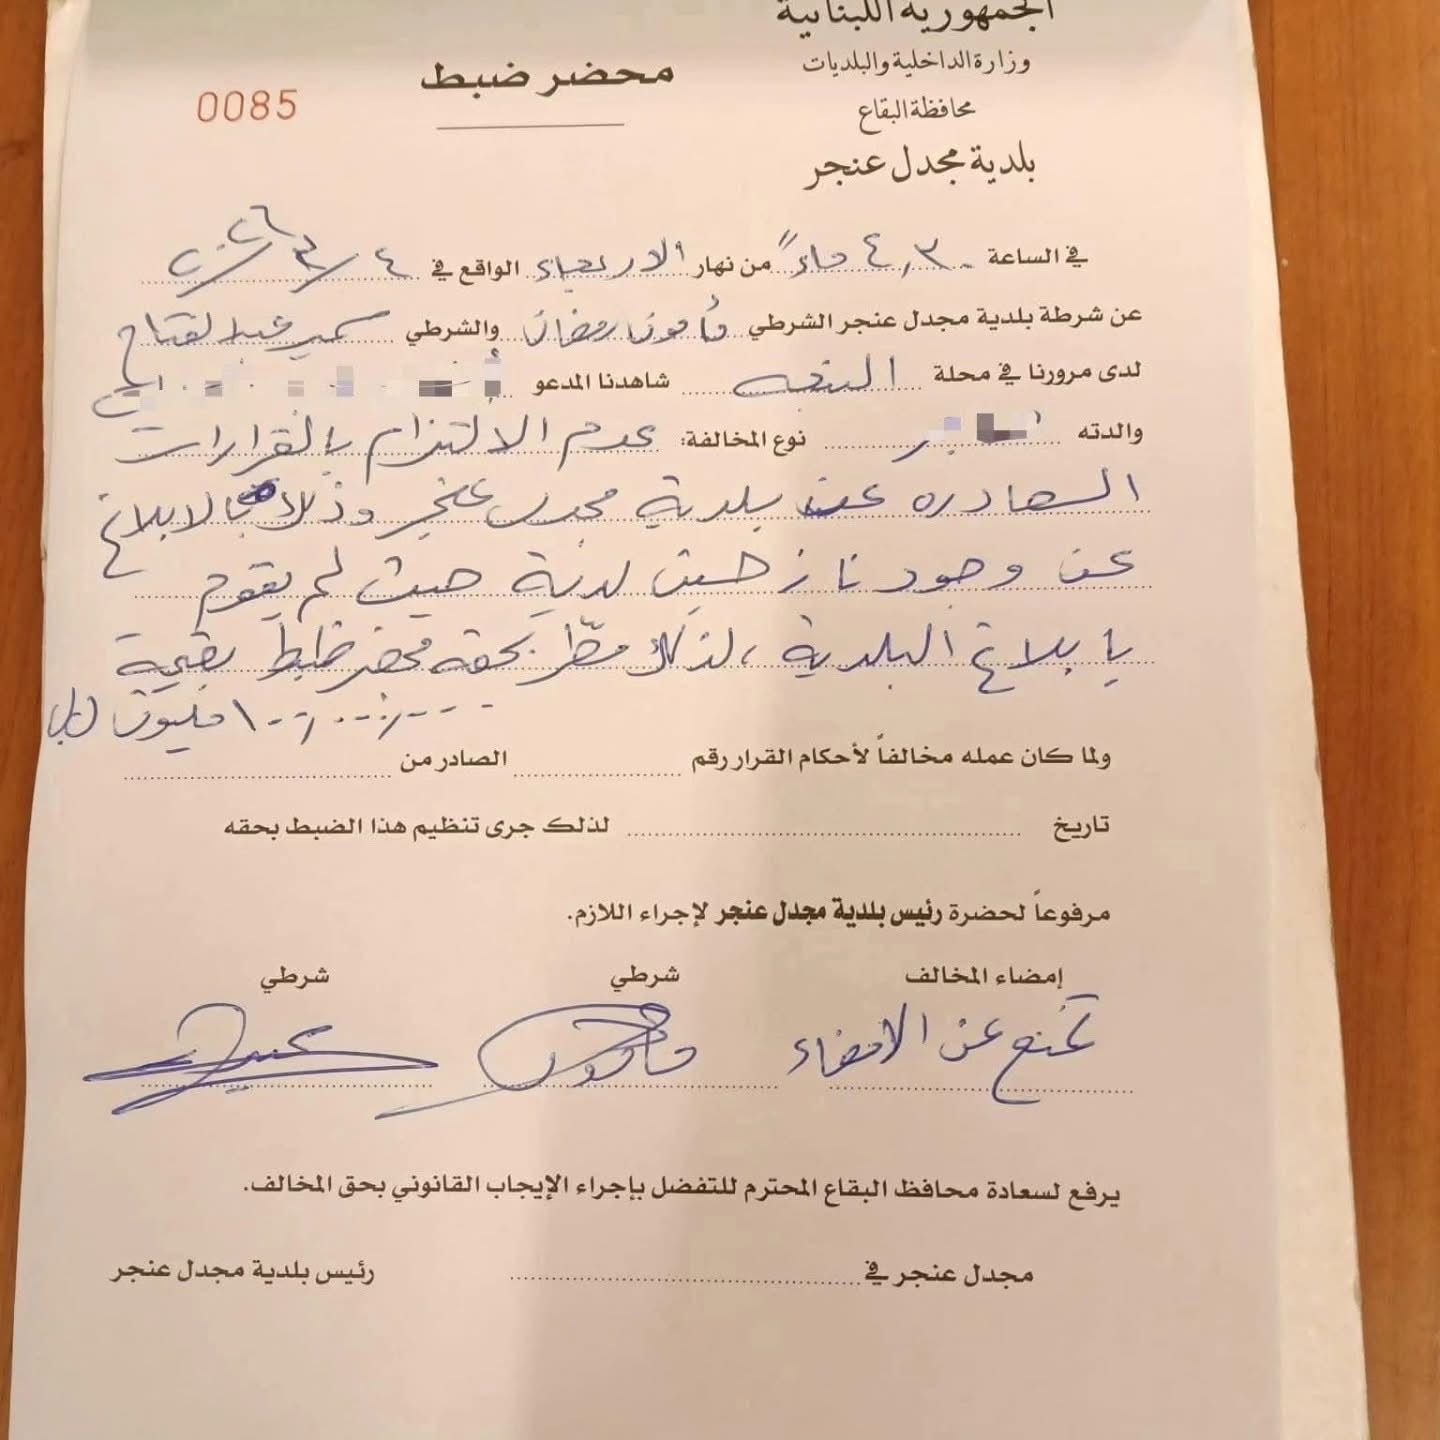 الجمهورية اللبنانية
وزارة الداخلية والبلديات
محافظة البقاع
بلدية مجدل عنجر
محضر ضبط
0085
في الساعة ٤,٣٠ مساءً من نهار الاربعاء الواقع في ٤/٣/٢٠٢٦
عن شرطة بلدية مجدل عنجر الشرطي مأمون رمضان والشرطي سمير عبد الفتاح
لدى مرورنا في محلة شاهدنا المدعو
والدته نوع المخالفة: عدم الالتزام بالقرارات
الصادره عن بلدية مجدل عنجر وذلك بالابلاغ
عن وجود نازحين لدية حيث لم يقوم
بابلاغ البلدية، لذلك سطّر بحقه محضر ضبط بقيمة
١٠٠,٠٠٠,٠٠٠ مليون ل.ل
ولما كان عمله مخالفاً لأحكام القرار رقم الصادر من
تاريخ لذلك جرى تنظيم هذا الضبط بحقه
مرفوعاً لحضرة رئيس بلدية مجدل عنجر لإجراء اللازم.
إمضاء المخالف شرطي شرطي
تمنع عن الامضاء مأمون
يرفع لسعادة محافظ البقاع المحترم للتفضل بإجراء الإيجاب القانوني بحق المخالف.
مجدل عنجر في رئيس بلدية مجدل عنجر